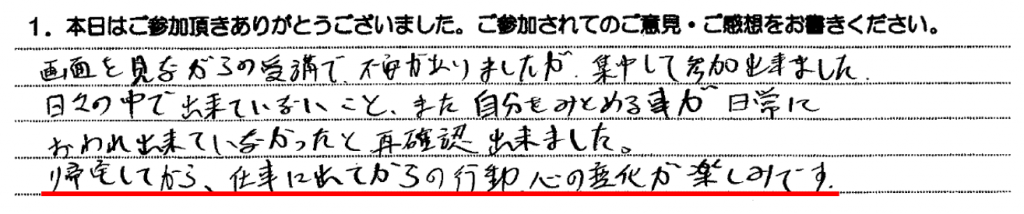 1. 本日はご参加頂きありがとうございました。ご参加されてのご意見・ご感想をお書きください。
画面を見ながらの受講で、不安が有りましたが、集中して参加出来ました。
日々の中で出来ていないこと、また自分をみとめる事が日常に
おわれ出来ていなかったと再確認出来ました。
帰宅してから、仕事に出てからの行動、心の変化が楽しみです。